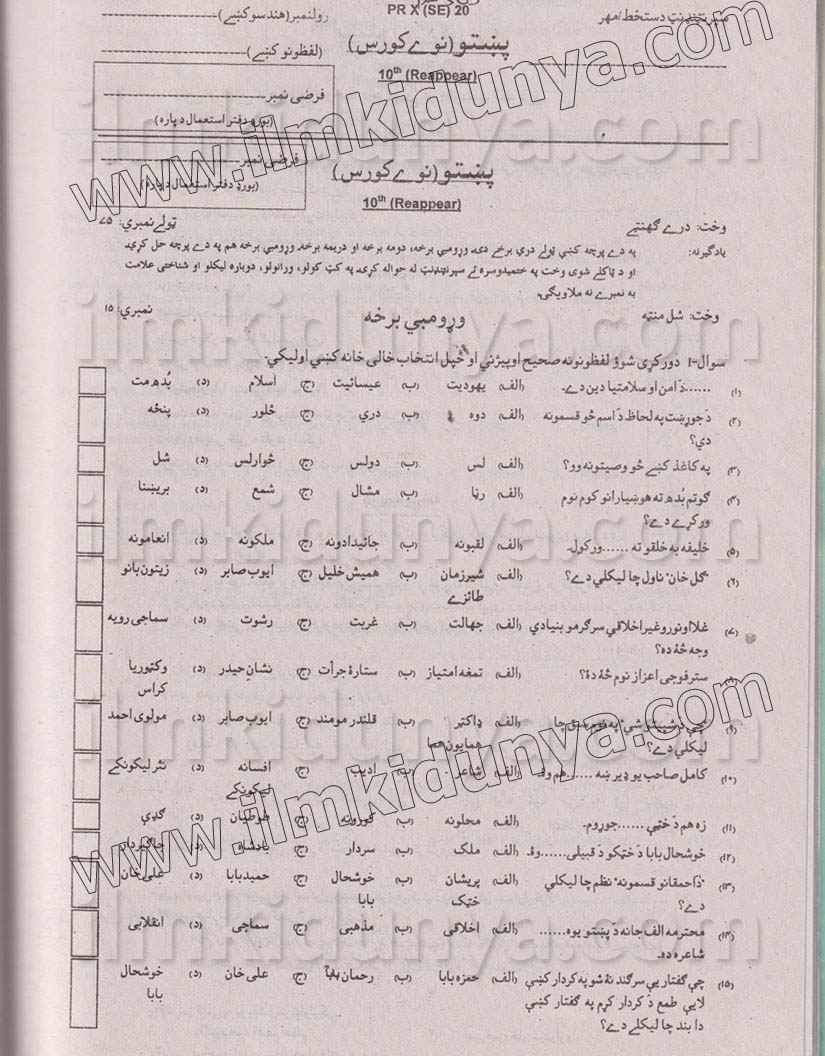 PR X (SE) 20
سپرنټنډنټ دستخط/مهر
رولنمبر (هندسو کښې)
پښتو (نوے کورس)
(لفظونو کښې)
10th (Reappear)
فرضی نمبر
(بورډ دفتر استعمال دپاره)
پښتو (نوے کورس)
فرضی نمبر
(بورډ دفتر استعمال دپاره)
10th (Reappear)
وخت: درے ګهنټے
ټولے نمبري: ۷۵
یادګیرنه: په دے پرچه کښې ټولے دري برخے دی۔ وړومبې برخه، دومه برخه او دریمه برخه۔ وړومبې برخه هم په دے پرچه حل کړې۔
او د ټاکلے شوی وخت په ختمیدو سره ئے سپرنټنډنټ له حواله کړې۔ په کټ کولو، ورانولو، دوباره لیکلو او شناختی علامت
به نمبرے نه ملاویږی۔
وخت: شل منټه
وړومبې برخه
نمبري: ۱۵
سوال-۱ دورکړی شوؤ لفظونونه صحیح اوپېژنې او خپل انتخاب خالی خانه کښې اولیکې-
(۱) ......دَ امن او سلامتیا دین دے۔ (الف) یهودیت (ب) عیسائیت (ج) اسلام (د) بُدھ مت
(۲) دَ جوړښت په لحاظ دَ اسم څو قسمونه (الف) دوه (ب) دري (ج) څلور (د) پنځه
دي؟
(۳) په کاغذ کښے څو وصیتونه وو؟ (الف) لس (ب) دولس (ج) څوارلس (د) شل
(۴) ګوتم بُدھ ته هوښیارانو کوم نوم (الف) رڼا (ب) مشال (ج) شمع (د) بریښنا
ورکړے دے؟
(۵) خلیفه به خلقو ته ......ورکول۔ (الف) لقبونه (ب) جائیدادونه (ج) ملکونه (د) انعامونه
(۶) "ګل خان" ناول چا لیکلي دے؟ (الف) شیرزمان (ب) همیش خلیل (ج) ایوب صابر (د) زیتون بانو
طائزے
(۷) غلا اونورو غیر اخلاقي سرګرمو بنیادي (الف) جهالت (ب) غربت (ج) رشوت (د) سماجی رویه
وجه څهٔ ده؟
(۸) ستر فوجی اعزاز نوم څهٔ دهٔ؟ (الف) تمغه امتیاز (ب) ستارۂ جرأت (ج) نشان حیدر (د) وکټوریا
کراس
(۹) په نوم سبق چا (الف) ډاکټر (ب) قلندر مومند (ج) ایوب صابر (د) مولوی احمد
لیکلي دے؟ همایون هما
(۱۰) کامل صاحب یو ډیر ښه ......هم وو۔ (الف) شاعر (ب) ادیب (ج) افسانه (د) نثر لیکونکے
لیکونکے
(۱۱) زه هم دَ ختې ......جوړوم۔ (الف) محلونه (ب) کورونه (ج) طوطیان (د) ګډې
(۱۲) خوشحال بابا دَ خټکو دَ قبیلې......وؤ۔ (الف) ملک (ب) سردار (ج) بادشاه (د) جاګیردار
(۱۳) "دَ احمقانو قسمونه" نظم چا لیکلي (الف) پریشان (ب) خوشحال (ج) حمید بابا (د) علی خان
دے؟ خټک بابا
(۱۴) محترمه الف جانه دَ پښتو یوه...... (الف) اخلاقی (ب) مذهبی (ج) سماجی (د) انقلابی
شاعره ده۔
(۱۵) چې ګفتار یې سرګند نهٔ شو په کردار کښې (الف) حمزه بابا (ب) رحمان بابا (ج) علی خان (د) خوشحال
لايې طمع دَ کردار کړم په ګفتار کښې بابا
دا بند چا لیکلے دے؟
www.ilmkidunya.com
www.ilmkidunya.com
www.ilmkidunya.com
ilmkidunya.com
ilmkidunya.com
ilmkidunya.com
ilmkidunya.com
ilmkidunya.com